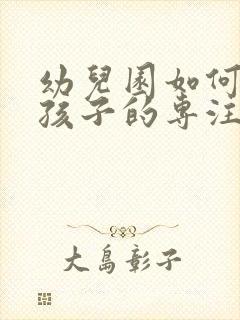 幼兒園如何
孩子的專注
大島彰子